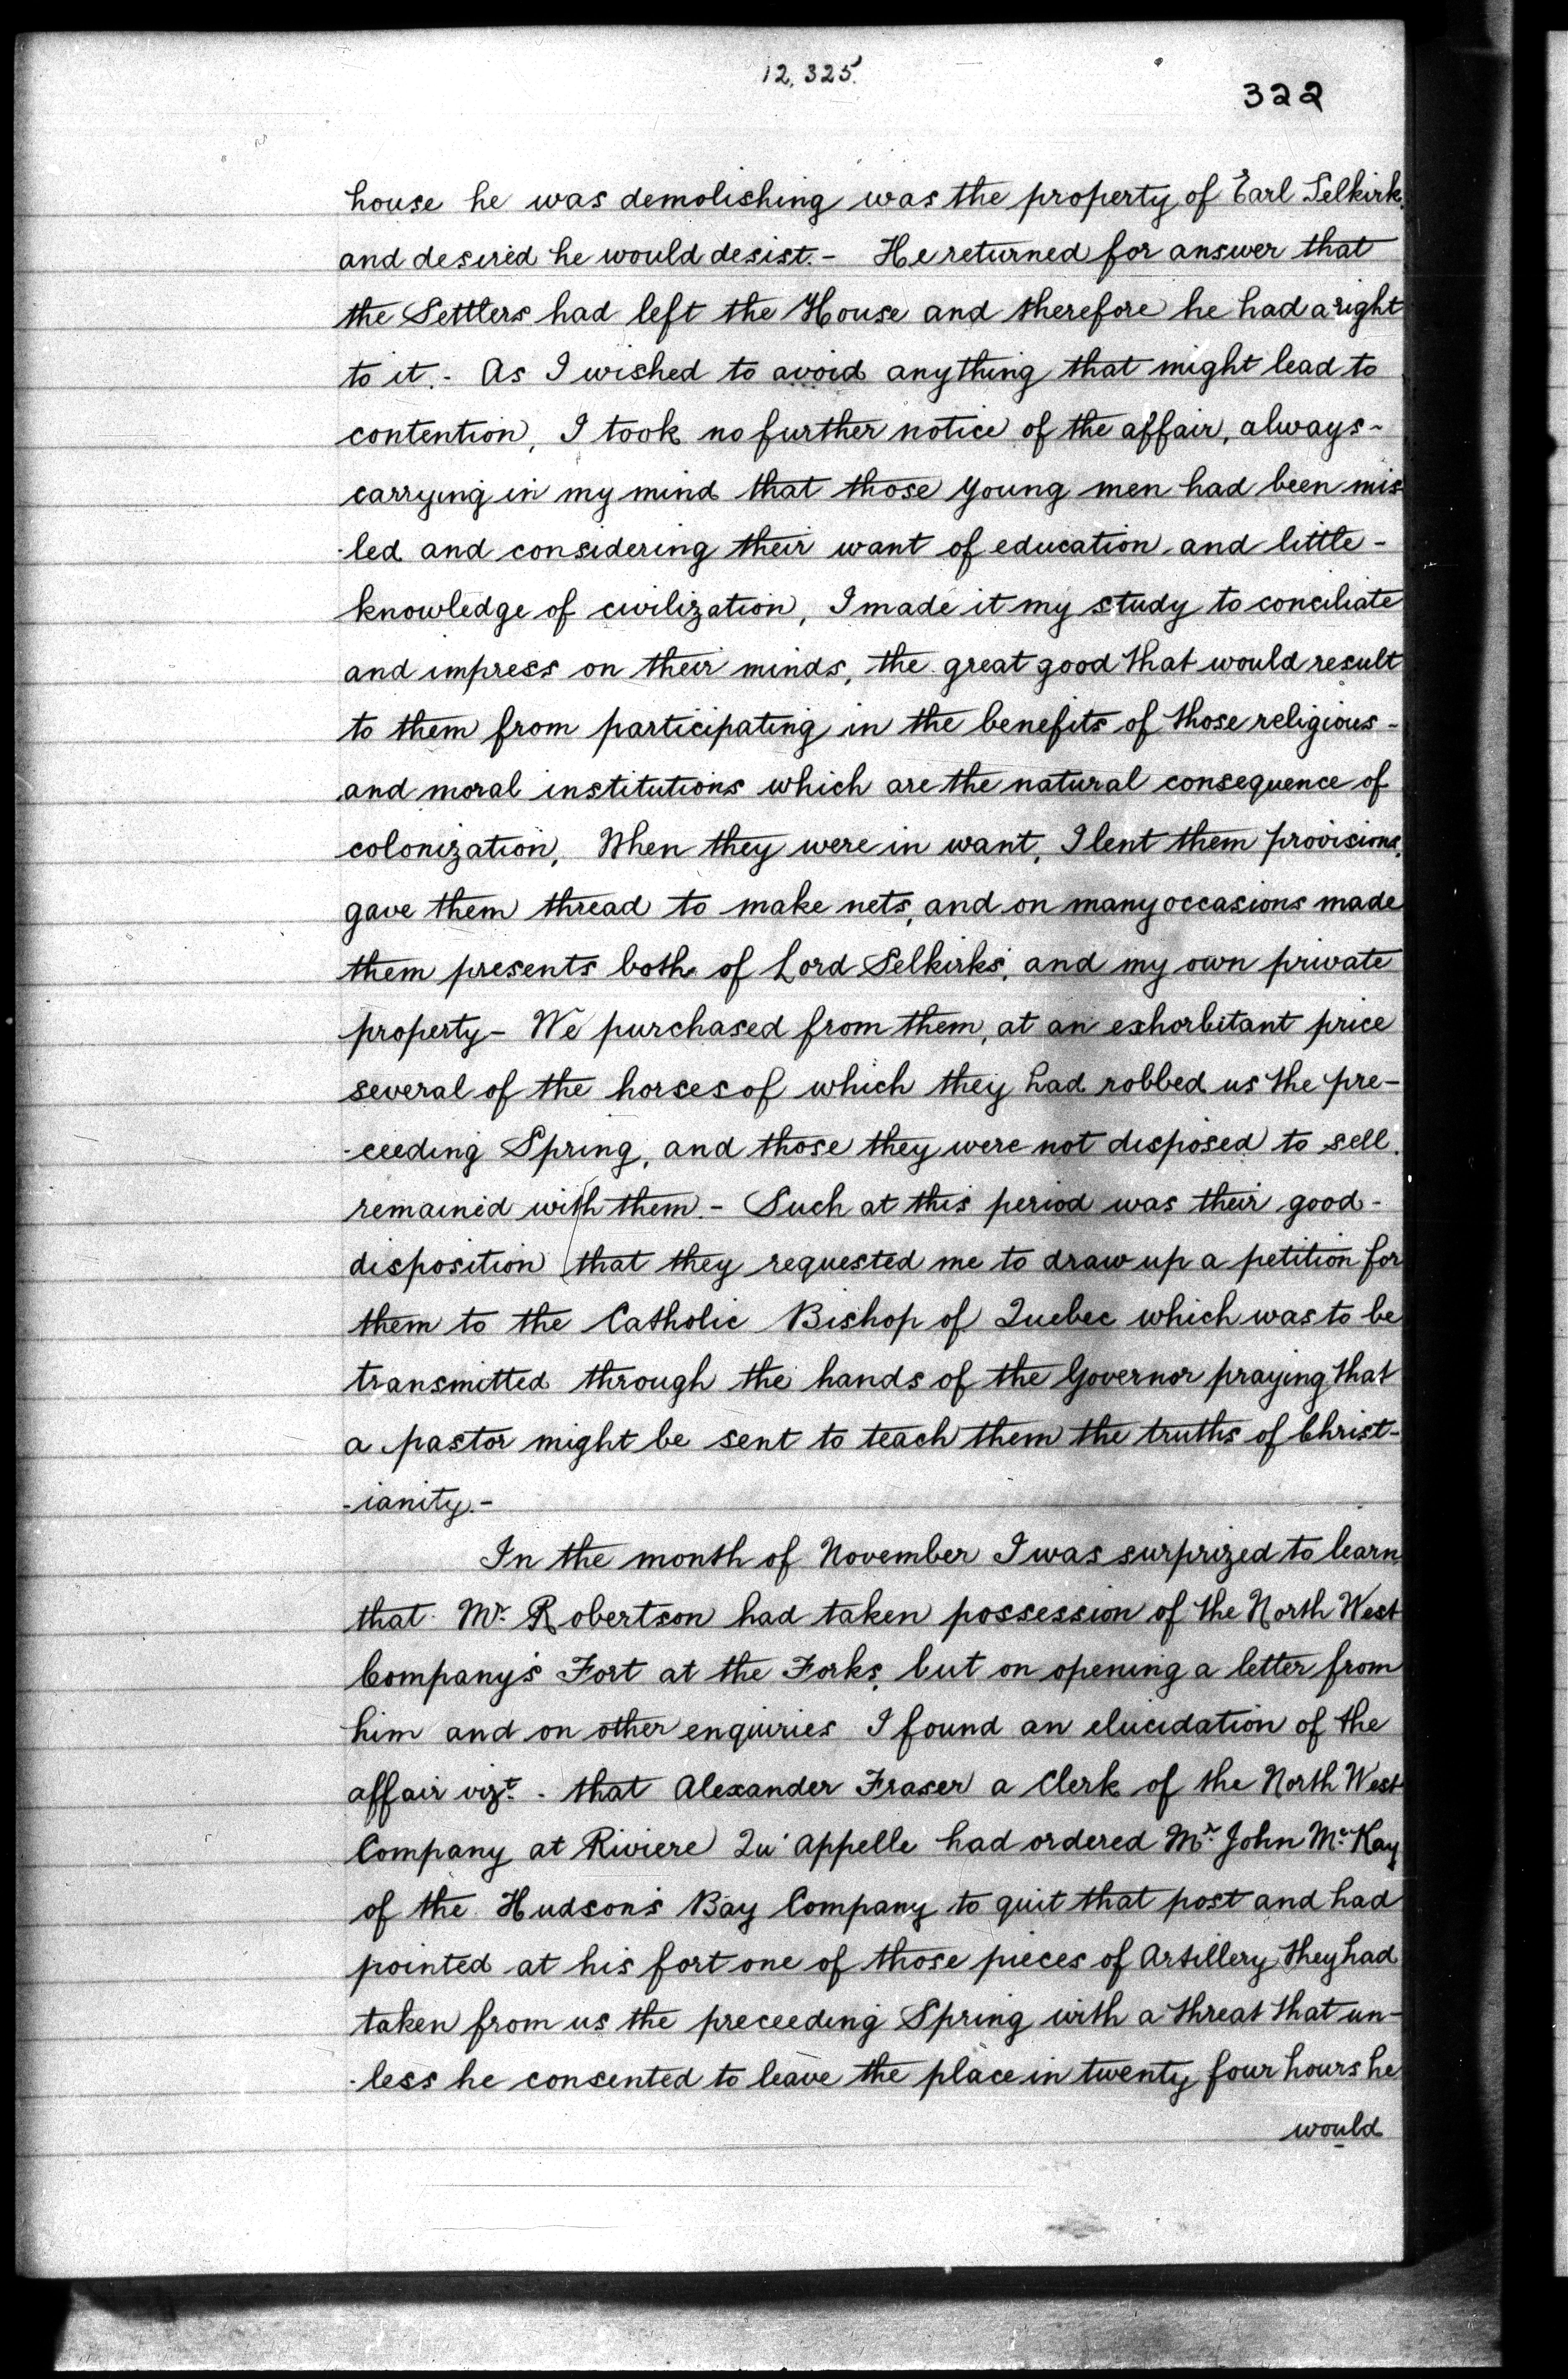 12,325.
322
house he was demolishing was the property of Earl Selkirk,
and desired he would desist.- He returned for answer that
the Settlers had left the House and therefore he had a right
to it.- As I wished to avoid anything that might lead to
contention, I took no further notice of the affair, always-
carrying in my mind that those young men had been mis
-led and considering their want of education and little-
knowledge of civilization, I made it my study to conciliate
and impress on their minds, the great good that would result
to them from participating in the benefits of those religious-
and moral institutions which are the natural consequence of
colonization, When they were in want, I lent them provisions,
gave them thread to make nets, and on many occasions made
them presents both of Lord Selkirks, and my own private
property- We purchased from them, at an exhorbitant price
several of the horses of which they had robbed us the pre-
-ceeding Spring, and those they were not disposed to sell.
remained with them.- Such at this period was their good-
disposition that they requested me to draw up a petition for
them to the Catholic Bishop of Quebec which was to be
transmitted through the hands of the Governor praying that
a pastor might be sent to teach them the truths of Christ-
-ianity.-
In the month of November I was surprized to learn
that Mr. Robertson had taken possession of the North West
Company's Fort at the Forks, but on opening a letter from
him and on other enquiries I found an elucidation of the
affair vizt. - that Alexander Fraser a Clerk of the North West
Company at Riviere Qu'appelle had ordered Mr. John Mc.Kay
of the Hudson's Bay Company to quit that post and had
pointed at his fort one of those pieces of Artillery they had
taken from us the preceeding Spring with a threat that un-
-less he consented to leave the place in twenty four hours he
would